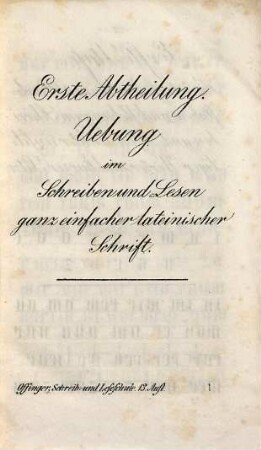 Erste Abtheilung.
Uebung
im
Schreiben und Lesen
ganz einfacher lateinischer
Schrift.
Offinger, Schreib- und Leseschule. 13. Aufl. 1